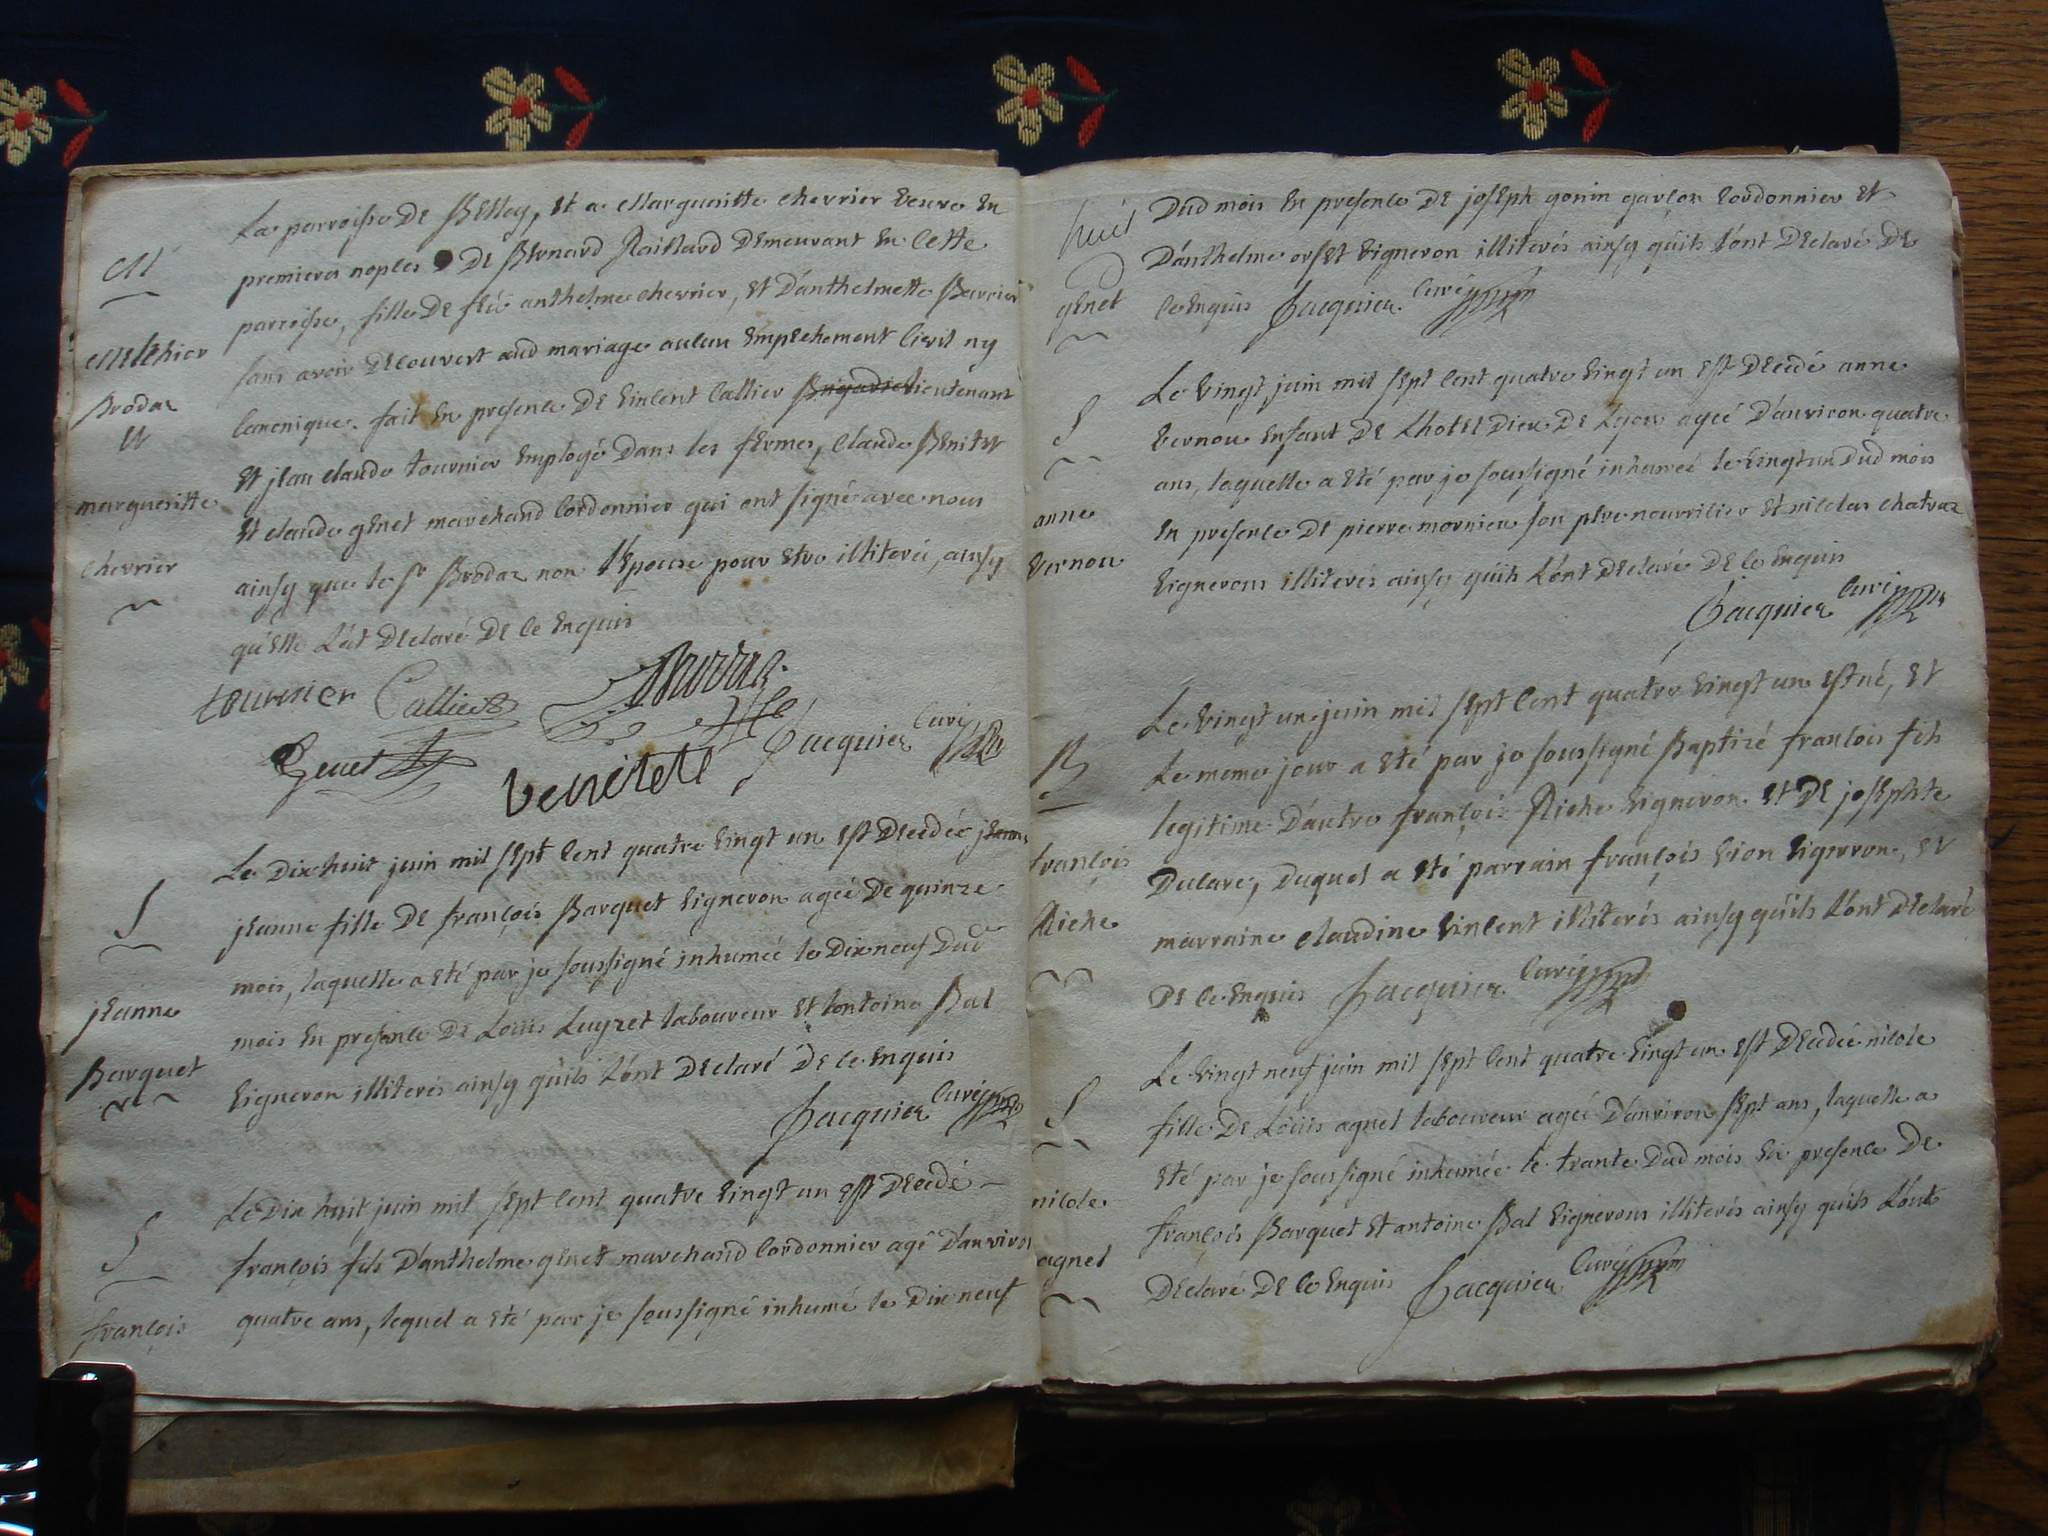 La parroisse De Belley, et a Margueritte chevrier veuve en
premieres noples De Bernard Raillard Demeurant en cette
parroisse, fille De feu anthelme chevrier, et D'anthelmette Barrier
sans avoir Decouvert aud mariage aucun empechement civil ny
canonique. fait en presence De vincent Callier Brigadier lieutenant
et jean claude tournier employé Dans les fermes, claude Benitet
et claude genet marchand cordonnier qui ont signé avec nous
ainsy que le sr Brodaz non l'epouse pour etre illiteréé, ainsy
qu'elle L'at Declaré De ce enquis
M
Melchior
Brodaz
et
margueritte
chevrier
tournier Callier Brodaz
Genet benitete Jacquier Curé
S
jeanne
Barquet
Le Dix huit juin mil sept cent quatre vingt un est Decedée jeanne
jeanne fille De françois Barquet vigneron ageé De quinze
mois, laquelle a eté par je soussigné inhumeé le Dix neuf Dud
mois en presence De Loüis Luyzet laboureur et Antoine Bal
vigneron illiterés ainsy quils L'ont Declaré De ce enquis
Jacquier Curé
S
françois
Le Dix huit juin mil sept cent quatre vingt un est Decedé
françois fils D'anthelme genet marchand cordonnier agé D'anviron
quatre ans, lequel a eté par je soussigné inhumé le Dix neuf
genet
Dud mois en presence De joseph gonin garçon cordonnier et
D'anthelme orset vigneron illiterés ainsy quils L'ont Declaré De
ce enquis Jacquier Curé
S
anne
vernou
Le vingt juin mil sept cent quatre vingt un est Decedé anne
vernou enfant De Lhotel Dieu De Lyon ageé D'anviron quatre
ans, laquelle a eté par je soussigné inhumeé le vingt un Dud mois
en presence De pierre mornieu son pere nourricier et nicolas chatraz
vignerons illiterés ainsy quils L'ont Declaré De ce enquis
Jacquier Curé
B
françois
Riche
Le vingt un juin mil sept cent quatre vingt un est né, et
Le meme jour a eté par je soussigné Baptizé françois fils
legitime D'autre françois Riche vigneron et De josephte
Duclare, Duquel a eté parrain françois vion vigneron, et
marraine claudine vincent illiterés ainsy quils L'ont Declaré
De ce enquis Jacquier Curé
S
nicole
agnel
Le vingt neuf juin mil sept cent quatre vingt un est Decedée nicole
fille De Loüis agnel laboureur ageé D'anviron sept ans, laquelle a
eté par je soussigné inhumée le trante Dud mois en presence De
françois Barquet et antoine Bal vignerons illiterés ainsy quils L'ont
Declaré De ce enquis Jacquier Curé